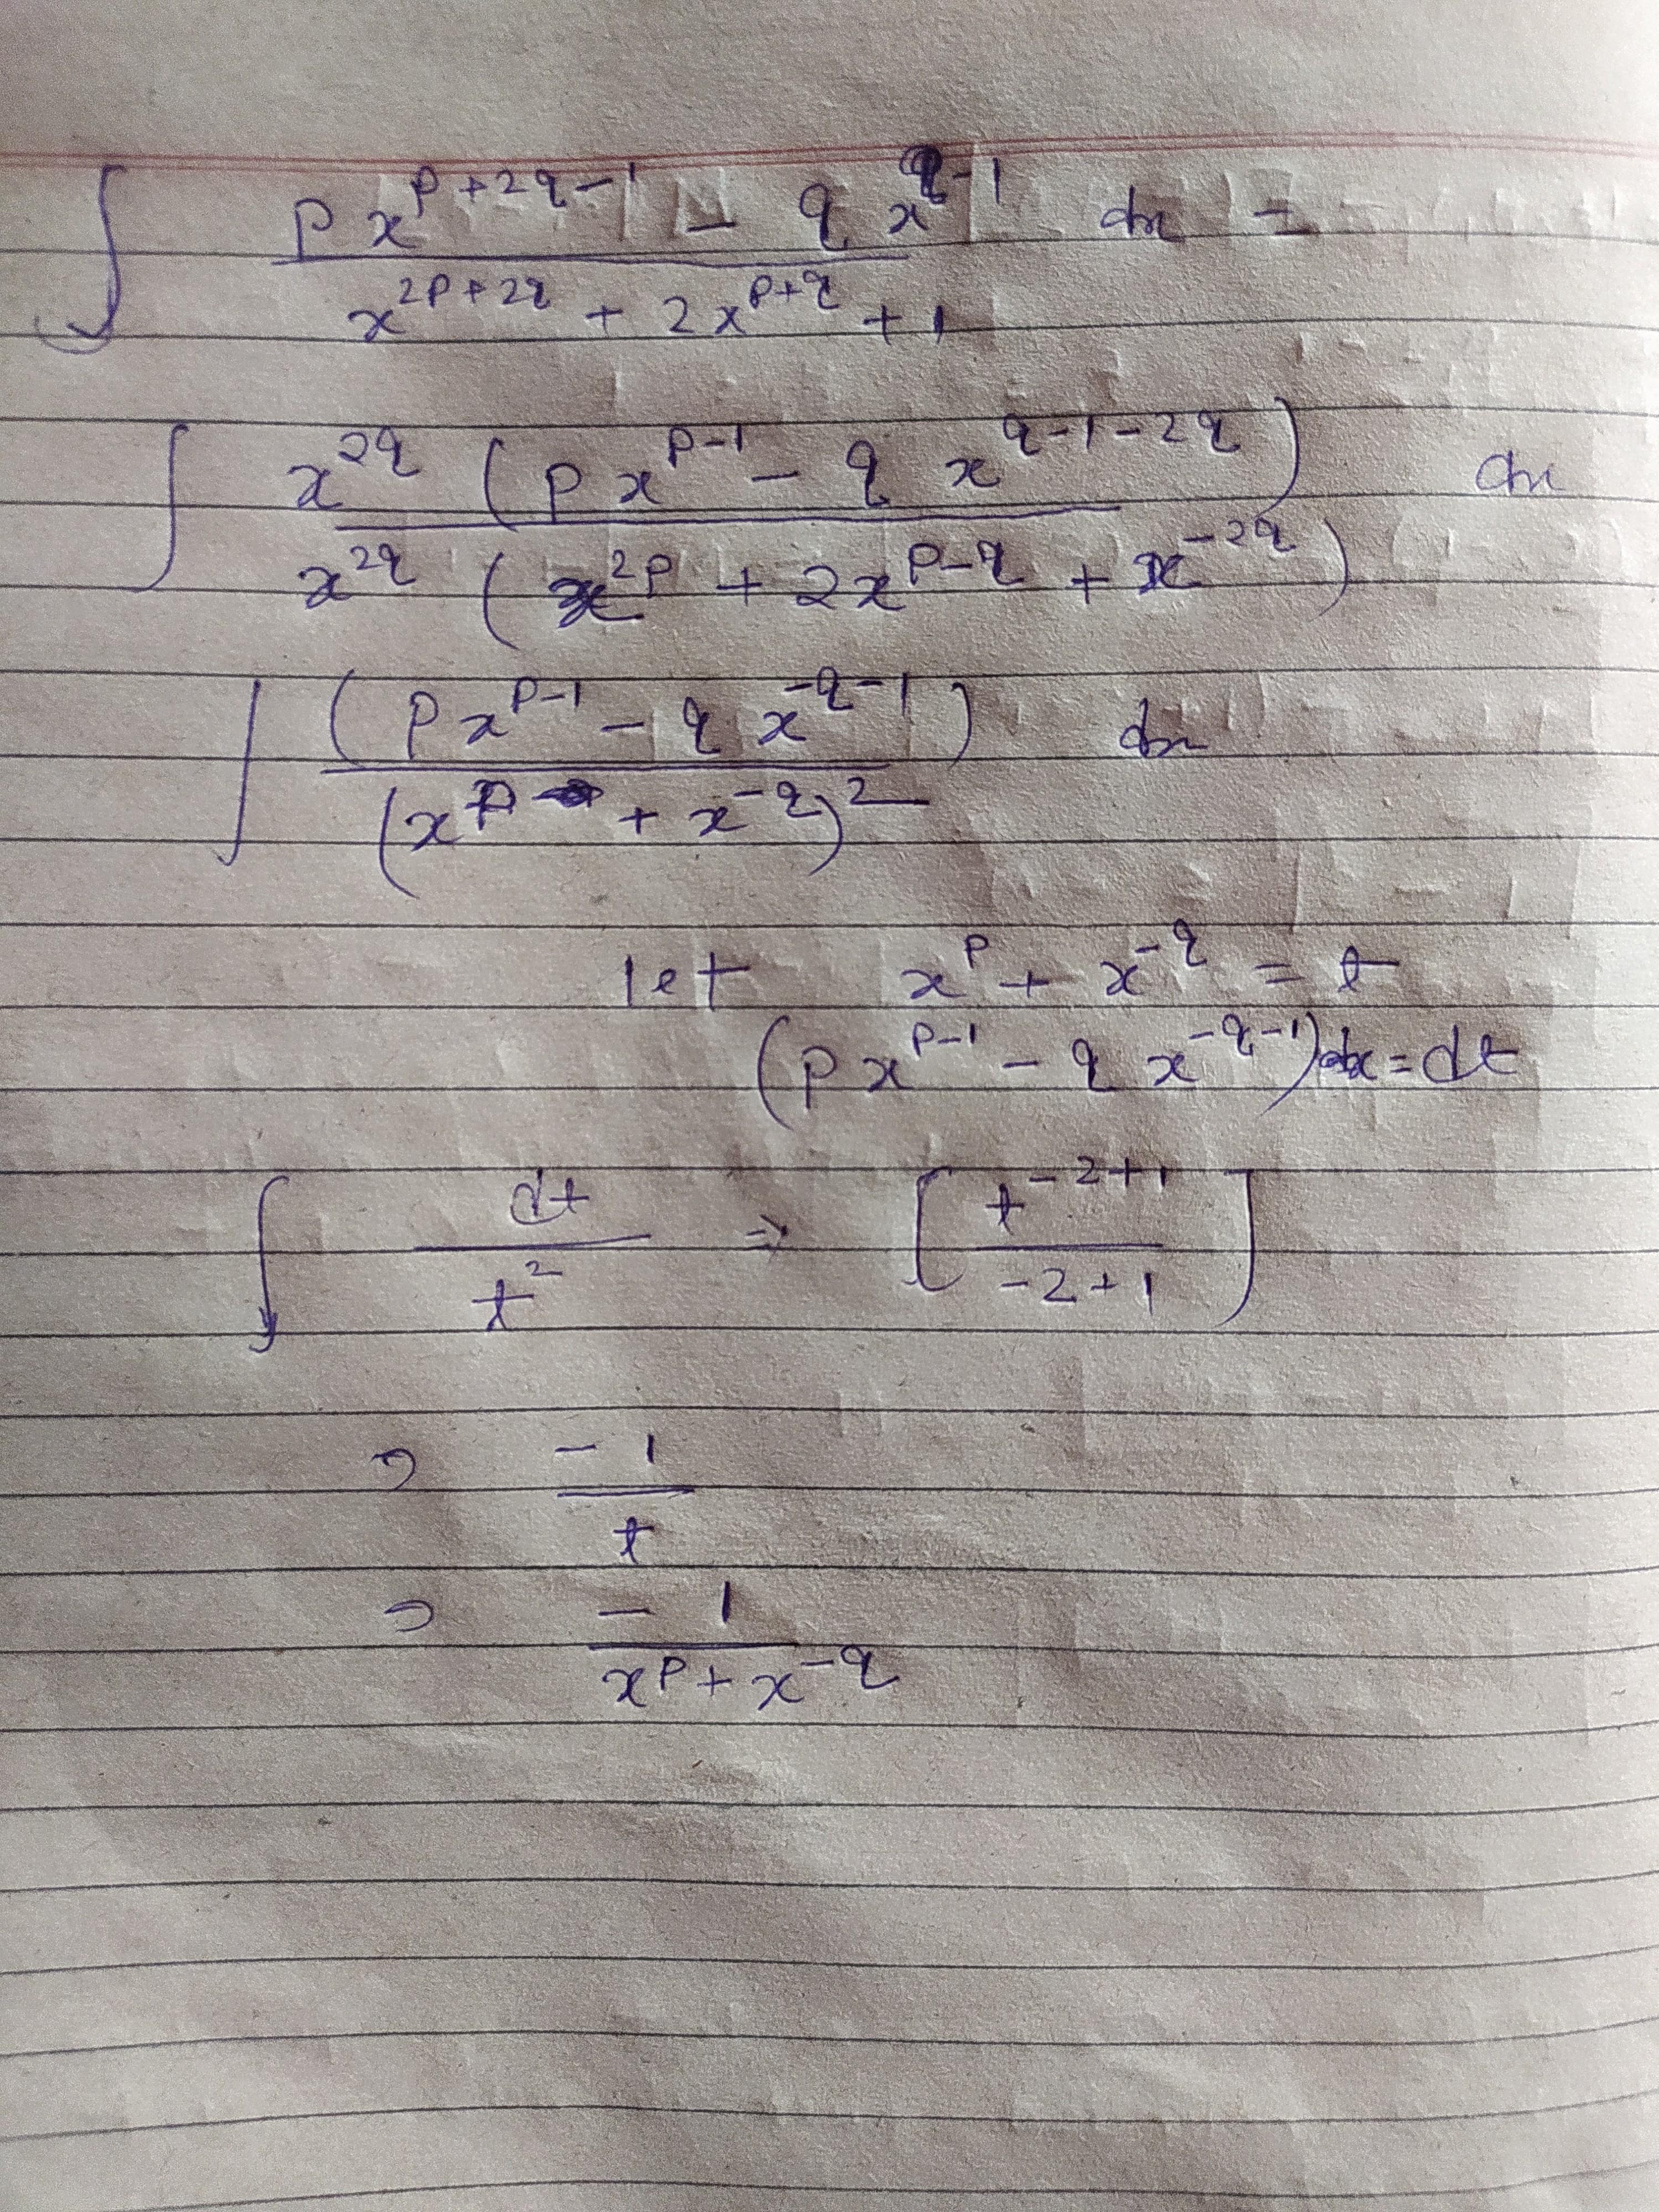 ∫ (p x^(p+2q-1) - q x^(q-1)) / (x^(2p+2q) + 2x^(p+q) + 1) dx =
∫ x^(2q) (p x^(p-1) - q x^(q-1-2q)) / x^(2q) (x^(2p) + 2x^(p-q) + x^(-2q)) dx
∫ (p x^(p-1) - q x^(-q-1)) / (x^p + x^(-q))^2 dx
let x^p + x^(-q) = t
(p x^(p-1) - q x^(-q-1)) dx = dt
∫ dt / t^2 ⇒ [t^(-2+1) / -2+1]
⇒ -1 / t
⇒ -1 / x^p + x^(-q)